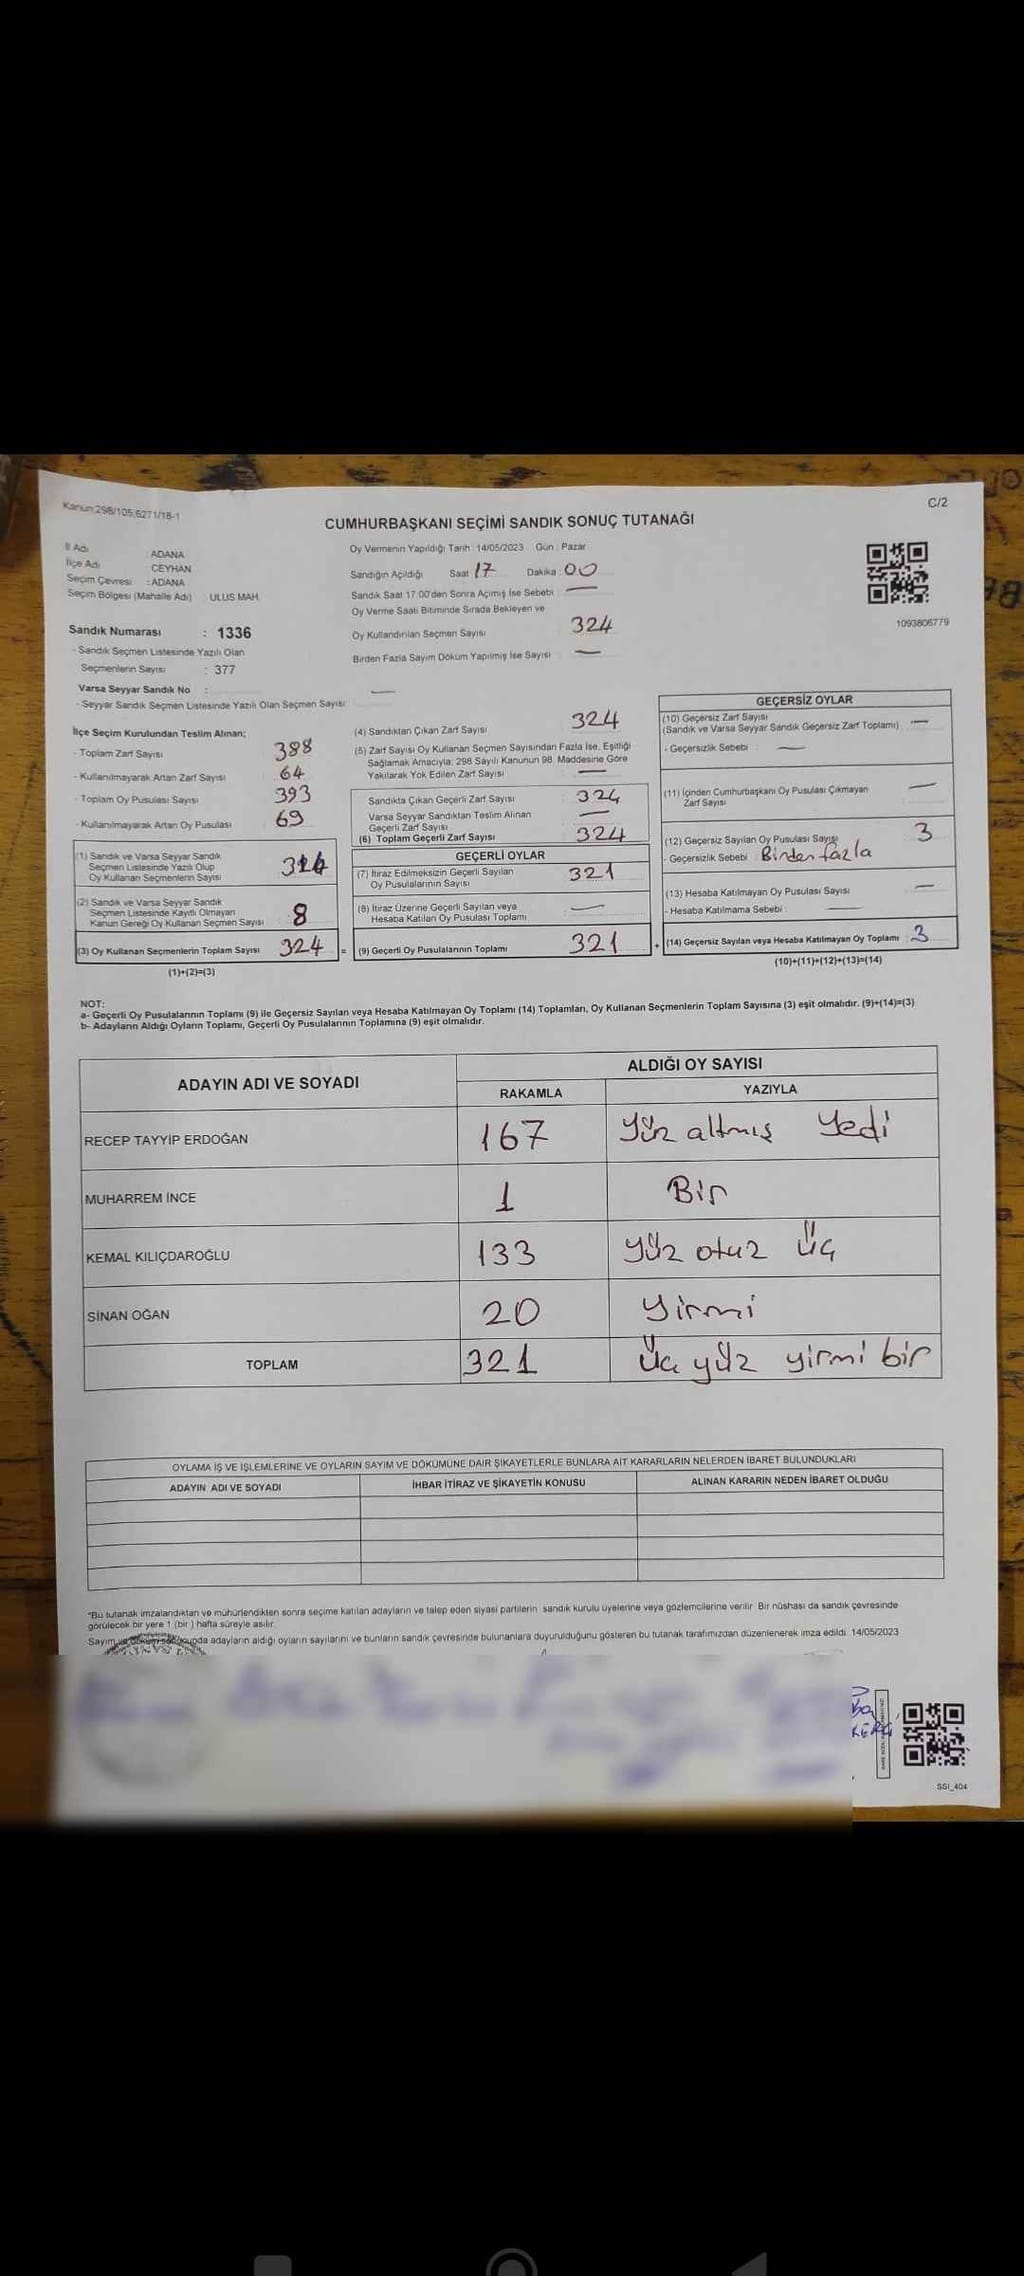 Kanun:298/105,6271/18-1
C/2
CUMHURBAŞKANI SEÇİMİ SANDIK SONUÇ TUTANAĞI
İl Adı : ADANA
İlçe Adı : CEYHAN
Seçim Çevresi : ADANA
Seçim Bölgesi (Mahalle Adı) : ULUS MAH.
Sandık Numarası : 1336
- Sandık Seçmen Listesinde Yazılı Olan
Seçmenlerin Sayısı : 377
Varsa Seyyar Sandık No : —
- Seyyar Sandık Seçmen Listesinde Yazılı Olan Seçmen Sayısı:
Oy Vermenin Yapıldığı Tarih : 14/05/2023 Gün : Pazar
Sandığın Açıldığı Saat 17 Dakika 00
Sandık Saat 17:00'den Sonra Açımış İse Sebebi : —
Oy Verme Saati Bitiminde Sırada Bekleyen ve
Oy Kullandırılan Seçmen Sayısı 324
Birden Fazla Sayım Döküm Yapılmış İse Sayısı : —
1093806779
İlçe Seçim Kurulundan Teslim Alınan;
- Toplam Zarf Sayısı 388
- Kullanılmayarak Artan Zarf Sayısı 64
- Toplam Oy Pusulası Sayısı 393
- Kullanılmayarak Artan Oy Pusulası 69
(1) Sandık ve Varsa Seyyar Sandık
Seçmen Listesinde Yazılı Olup
Oy Kullanan Seçmenlerin Sayısı
(2) Sandık ve Varsa Seyyar Sandık
Seçmen Listesinde Kayıtlı Olmayan
Kanun Gereği Oy Kullanan Seçmen Sayısı 8
(3) Oy Kullanan Seçmenlerin Toplam Sayısı 324 =
(1)+(2)=(3)
(4) Sandıktan Çıkan Zarf Sayısı 324
(5) Zarf Sayısı Oy Kullanan Seçmen Sayısından Fazla İse, Eşitliği
Sağlamak Amacıyla; 298 Sayılı Kanunun 98. Maddesine Göre
Yakılarak Yok Edilen Zarf Sayısı : —
Sandıkta Çıkan Geçerli Zarf Sayısı : 324
Varsa Seyyar Sandıktan Teslim Alınan
Geçerli Zarf Sayısı : —
(6) Toplam Geçerli Zarf Sayısı : 324
GEÇERLİ OYLAR
(7) İtiraz Edilmeksizin Geçerli Sayılan
Oy Pusulalarının Sayısı : 321
(8) İtiraz Üzerine Geçerli Sayılan veya
Hesaba Katılan Oy Pusulası Toplamı : —
(9) Geçerli Oy Pusulalarının Toplamı 321 +
GEÇERSİZ OYLAR
(10) Geçersiz Zarf Sayısı
(Sandık ve Varsa Seyyar Sandık Geçersiz Zarf Toplamı) : —
- Geçersizlik Sebebi : —
(11) İçinden Cumhurbaşkanı Oy Pusulası Çıkmayan
Zarf Sayısı —
(12) Geçersiz Sayılan Oy Pusulası Sayısı 3
- Geçersizlik Sebebi : Birden fazla
(13) Hesaba Katılmayan Oy Pusulası Sayısı —
- Hesaba Katılmama Sebebi : —
(14) Geçersiz Sayılan veya Hesaba Katılmayan Oy Toplamı : 3
(10)+(11)+(12)+(13)=(14)
NOT:
a- Geçerli Oy Pusulalarının Toplamı (9) ile Geçersiz Sayılan veya Hesaba Katılmayan Oy Toplamı (14) Toplamları, Oy Kullanan Seçmenlerin Toplam Sayısına (3) eşit olmalıdır. (9)+(14)=(3)
b- Adayların Aldığı Oyların Toplamı, Geçerli Oy Pusulalarının Toplamına (9) eşit olmalıdır.
ADAYIN ADI VE SOYADI
ALDIĞI OY SAYISI
RAKAMLA YAZIYLA
RECEP TAYYİP ERDOĞAN 167 Yüz altmış Yedi
MUHARREM İNCE 1 Bir
KEMAL KILIÇDAROĞLU 133 Yüz otuz üç
SİNAN OĞAN 20 Yirmi
TOPLAM 321 üç yüz yirmi bir
OYLAMA İŞ VE İŞLEMLERİNE VE OYLARIN SAYIM VE DÖKÜMÜNE DAİR ŞİKAYETLERLE BUNLARA AİT KARARLARIN NELERDEN İBARET BULUNDUKLARI
ADAYIN ADI VE SOYADI İHBAR İTİRAZ VE ŞİKAYETİN KONUSU ALINAN KARARIN NEDEN İBARET OLDUĞU
*Bu tutanak imzalandıktan ve mühürlendikten sonra seçime katılan adayların ve talep eden siyasi partilerin sandık kurulu üyelerine veya gözlemcilerine verilir. Bir nüshası da sandık çevresinde
görülecek bir yere 1 (bir) hafta süreyle asılır.
Sayım ve döküm sonucunda adayların aldığı oyların sayılarını ve bunların sandık çevresinde bulunanlara duyurulduğunu gösteren bu tutanak tarafımızdan düzenlenerek imza edildi. 14/05/2023
SSI_404